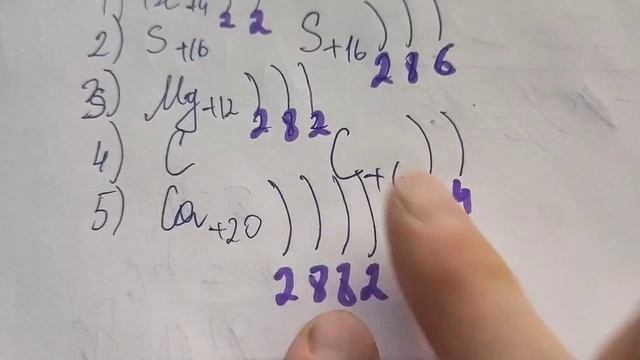 2 2
2) S+16 S+16 ) ) )
2 8 6
3) Mg+12 ) ) )
2 8 2
4) C C+ ) )
4
5) Ca+20 ) ) ) )
2 8 8 2